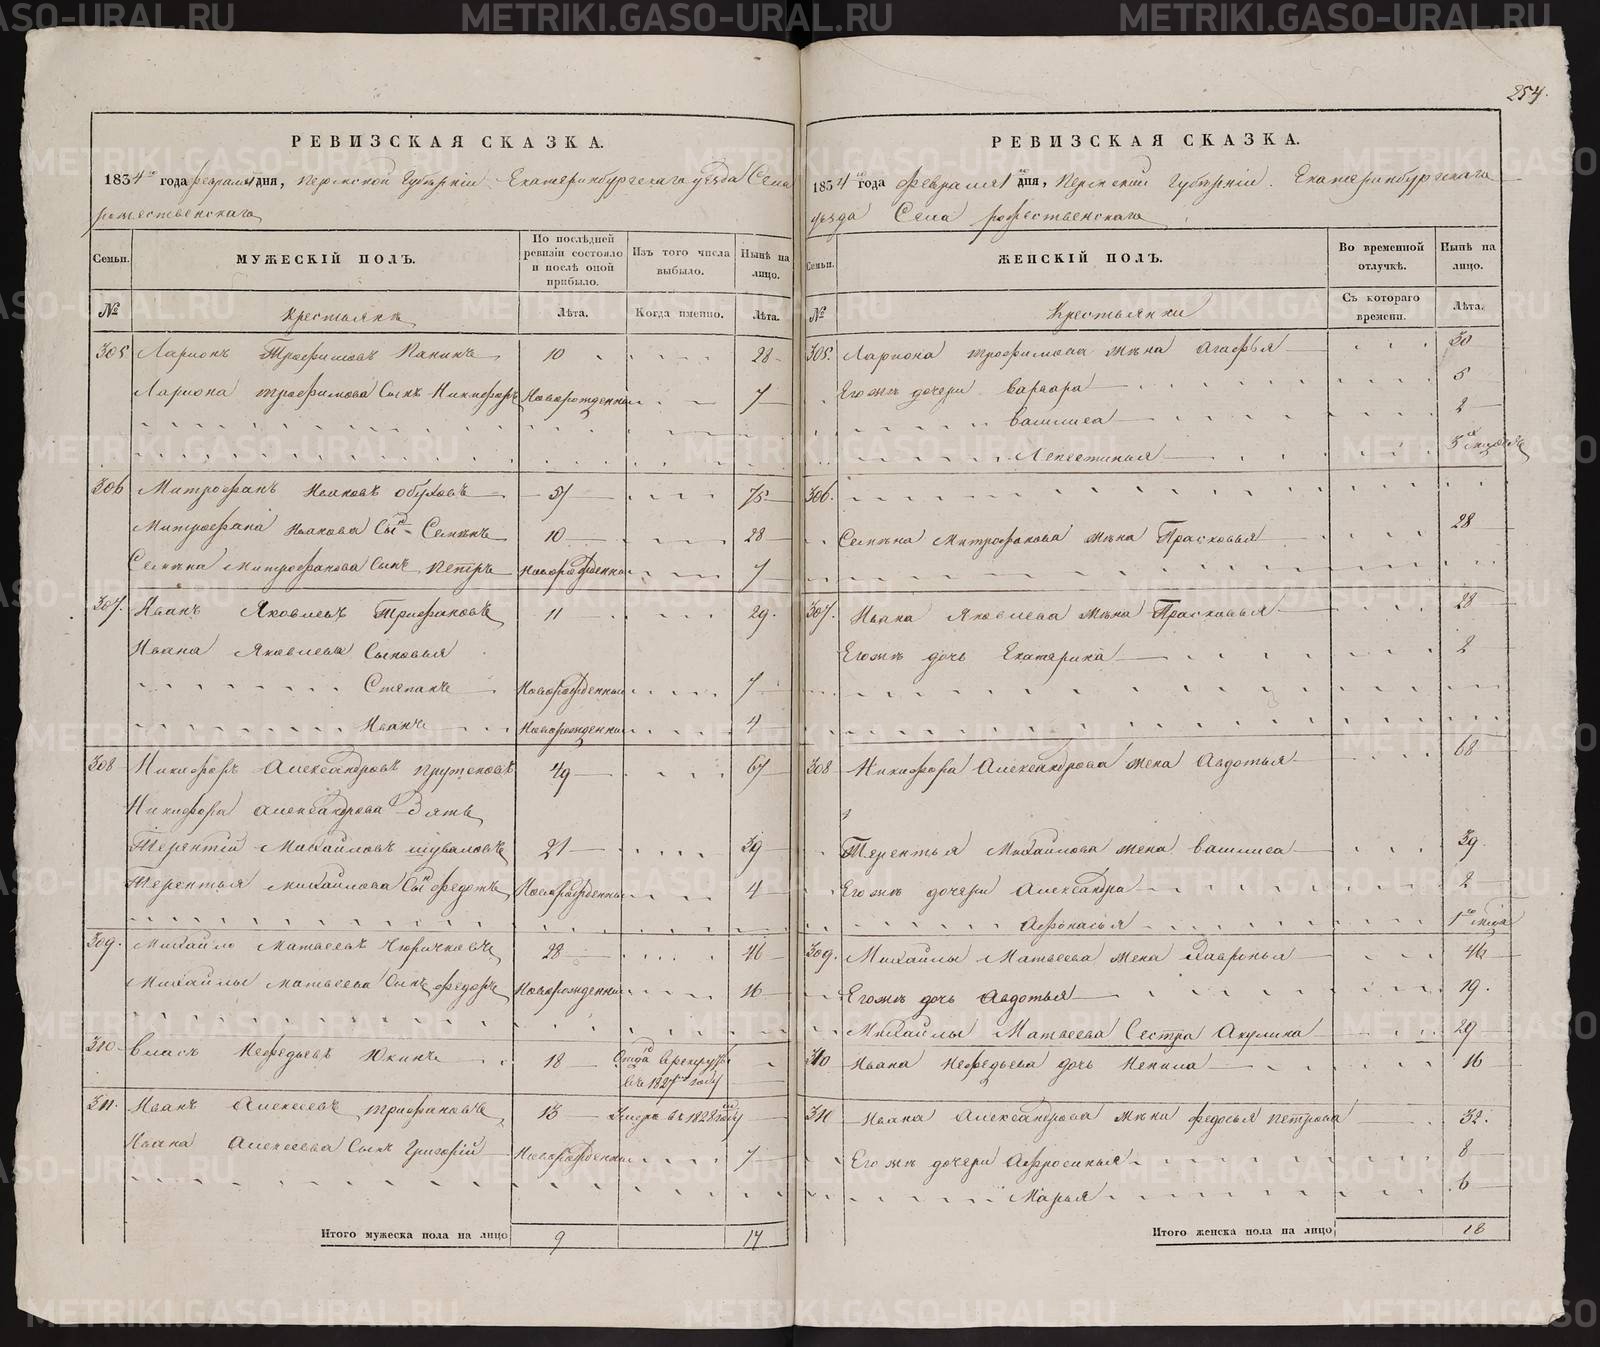 254.
РЕВИЗСКАЯ СКАЗКА.
1834 го года февраля 1 дня, Пермской Губернiи Екатеринбургскаго уезда Села
рожественскаго
Семьи. МУЖЕСКІЙ ПОЛЪ. По послѣдней ревизіи состояло и послѣ оной прибыло. Изъ того числа выбыло. Нынѣ на лицо.
№ Крестьянъ Лѣта. Когда именно. Лѣта.
305 Ларионъ Трофимовъ Панинъ 10 28
Лариона трофимова Сынъ Никифоръ Новорожденный 7
306 Митрофанъ Ивановъ обуховъ 57 75
Митрофана Иванова Сынъ Семенъ 10 28
Семена Митрофанова Сынъ петръ Новорожденный 7
307. Иванъ Яковлевъ Трифановъ 11 29.
Ивана Яковлева Сыновья
Степанъ Новорожденный 7
Иванъ Новорожденный 4
308 Никифоръ Александровъ 49 67
Никифора александрова Зять
Терентій Михайловъ шуваловъ 21 39
Терентья михайлова Сынъ федотъ Новорожденный 4
309. Михайло Матвеевъ 28 46
Михайлы матвеева Сынъ федоръ Новорожденный 16
310 власъ Нефедьевъ Юкинъ 18 Отданъ Врекруты въ 1827 м году
311. Иванъ Алексеевъ трифановъ 13 Умеръ въ 1828 году
Ивана Алексеева Сынъ Григорій Новорожденный 7
Итого мужеска пола на лицо 9 14
РЕВИЗСКАЯ СКАЗКА.
1834 го года февраля 1 дня, Пермской Губернiи. Екатеринбургскаго
уезда Села рожественскаго
Семьи. ЖЕНСКІЙ ПОЛЪ. Во временной отлучкѣ. Нынѣ на лицо.
№ Крестьянки Съ котораго времени. Лѣта.
305. Лариона трофимова жена агафья 30
Его жъ дочери варвара 5
василиса 2
306.
Семена Митрофанова жена Прасковья 28
307. Ивана Яковлева жена Прасковья 28
Его жъ дочь Екатерина 2
308 Никифора Александрова жена Авдотья 68
Терентья Михайлова жена василиса 39.
Его жъ дочери Александра 2
Афонасья
309. Михайлы Матвеева жена Хавронья 46
Его жъ дочь Авдотья 19.
Михайлы Матвеева Сестра Акулина 29
310 Ивана Нефедьева дочь Ненила 16
311 Ивана Александрова жена федосья петрова 32.
Его жъ дочери Афросинья 8
Марья 6
Итого женска пола на лицо 18